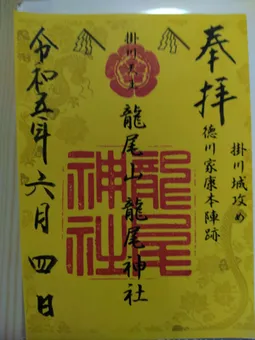 奉拝
掛川城攻め
徳川家康本陣跡
掛川天王
龍尾山 龍尾神社
龍尾神社
令和五年六月四日